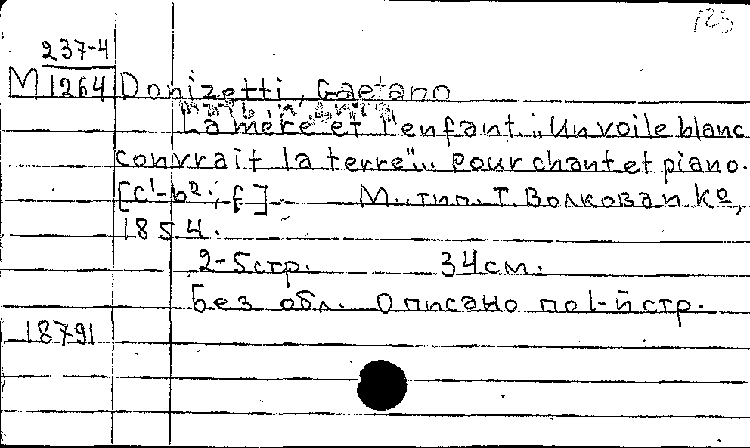 123
237-4
M 1264 Donizetti, Gaetano
La mère et l'enfant. „Un voile blanc
couvrait la terre"... pour chant et piano.
[c¹-b²; f] - М., тип. Т. Волкова и К°,
1854.
2-5 стр. 34 см.
Без обл. Описано по 1-й стр.
18791